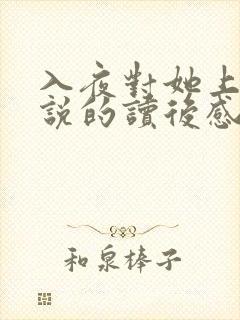 入夜對她上
說的讀後感
和泉棒子